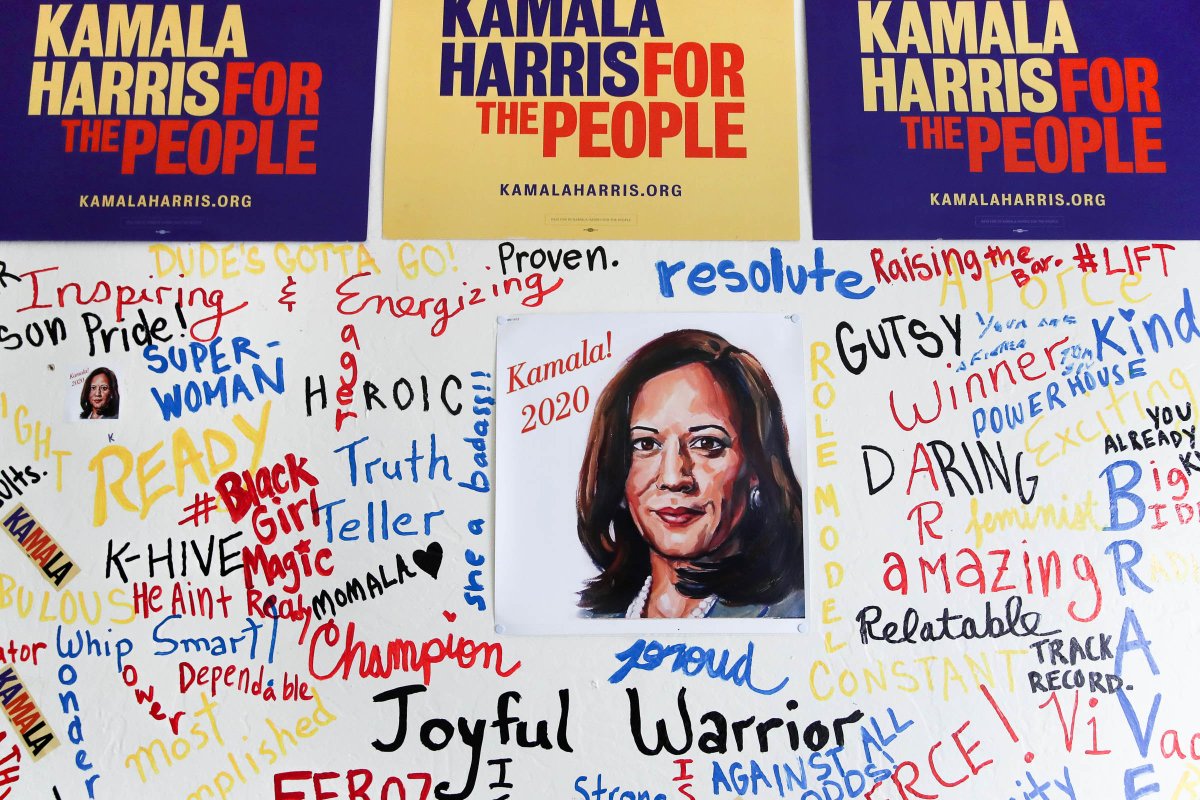 KAMALA
HARRIS FOR
THE PEOPLE
KAMALAHARRIS.ORG
KAMALA
HARRIS FOR
THE PEOPLE
KAMALAHARRIS.ORG
KAMALA
HARRIS FOR
THE PEOPLE
KAMALAHARRIS.ORG
DUDE'S GOTTA GO!
Proven.
resolute
Raising the Bar.
#LIFT
A FORCE
Inspiring & Energizing
Eager
son Pride!
SUPER-
WOMAN
HEROIC
Kamala!
2020
Kamala!
2020
GUTSY
Kind
Winner
POWERHOUSE
Exciting
ROLE MODEL
YOU
ALREADY
READY
Truth
Teller
she a badass!!!
#Black
Girl
Magic
DARING
feminist
Big
BRAVE
KAMALA
K-HIVE
MOMALA
He Aint Ready
amazing
Relatable
TRACK
RECORD.
Whip Smart
Wonder
Power
Dependable
Champion
proud
CONSTANT
KAMALA
most
Joyful Warrior
AGAINST ALL
ODDS.
Strong